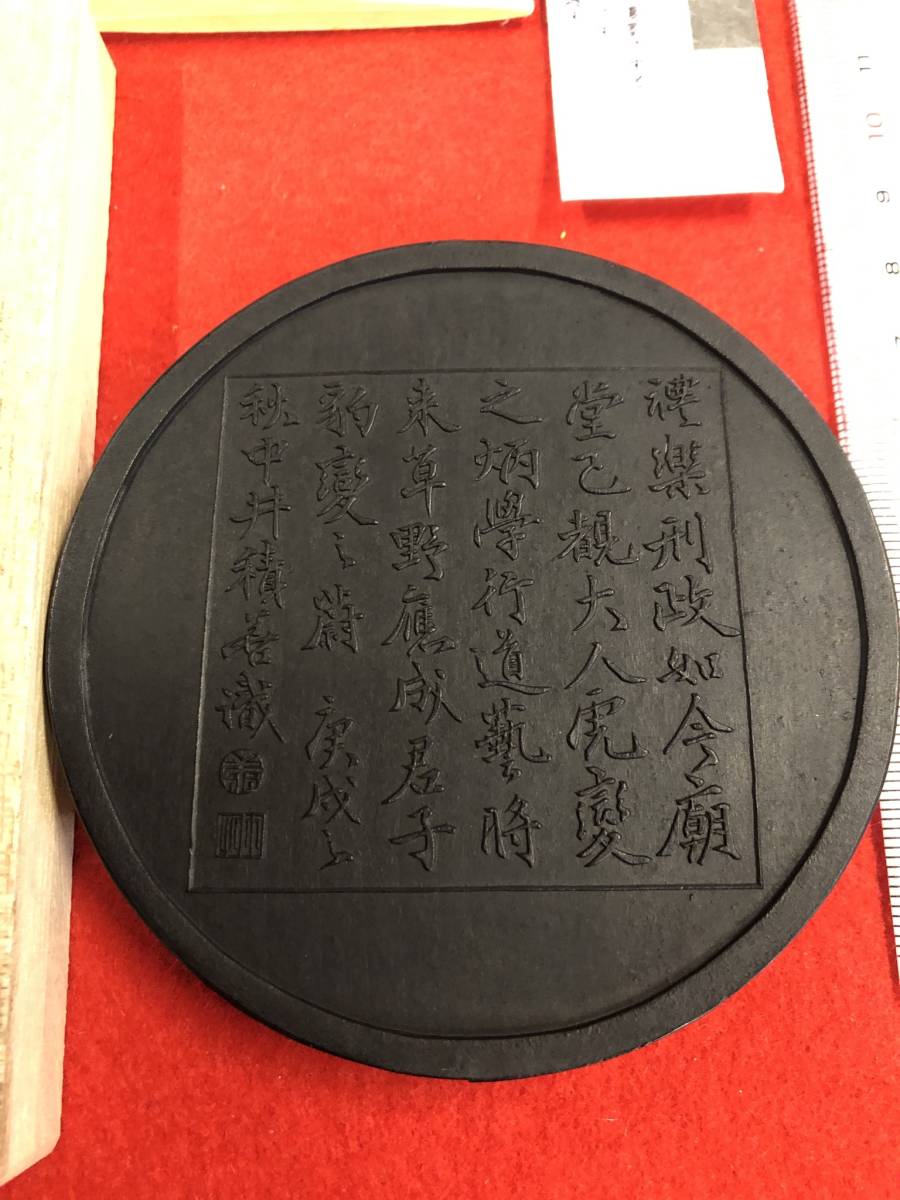 禮樂刑政如今廟
堂已觀大人虎變
之炳學行道藝將
来草野應成君子
豹變之蔚 庚戌之
秋中井積善識
11
10
9
8
7